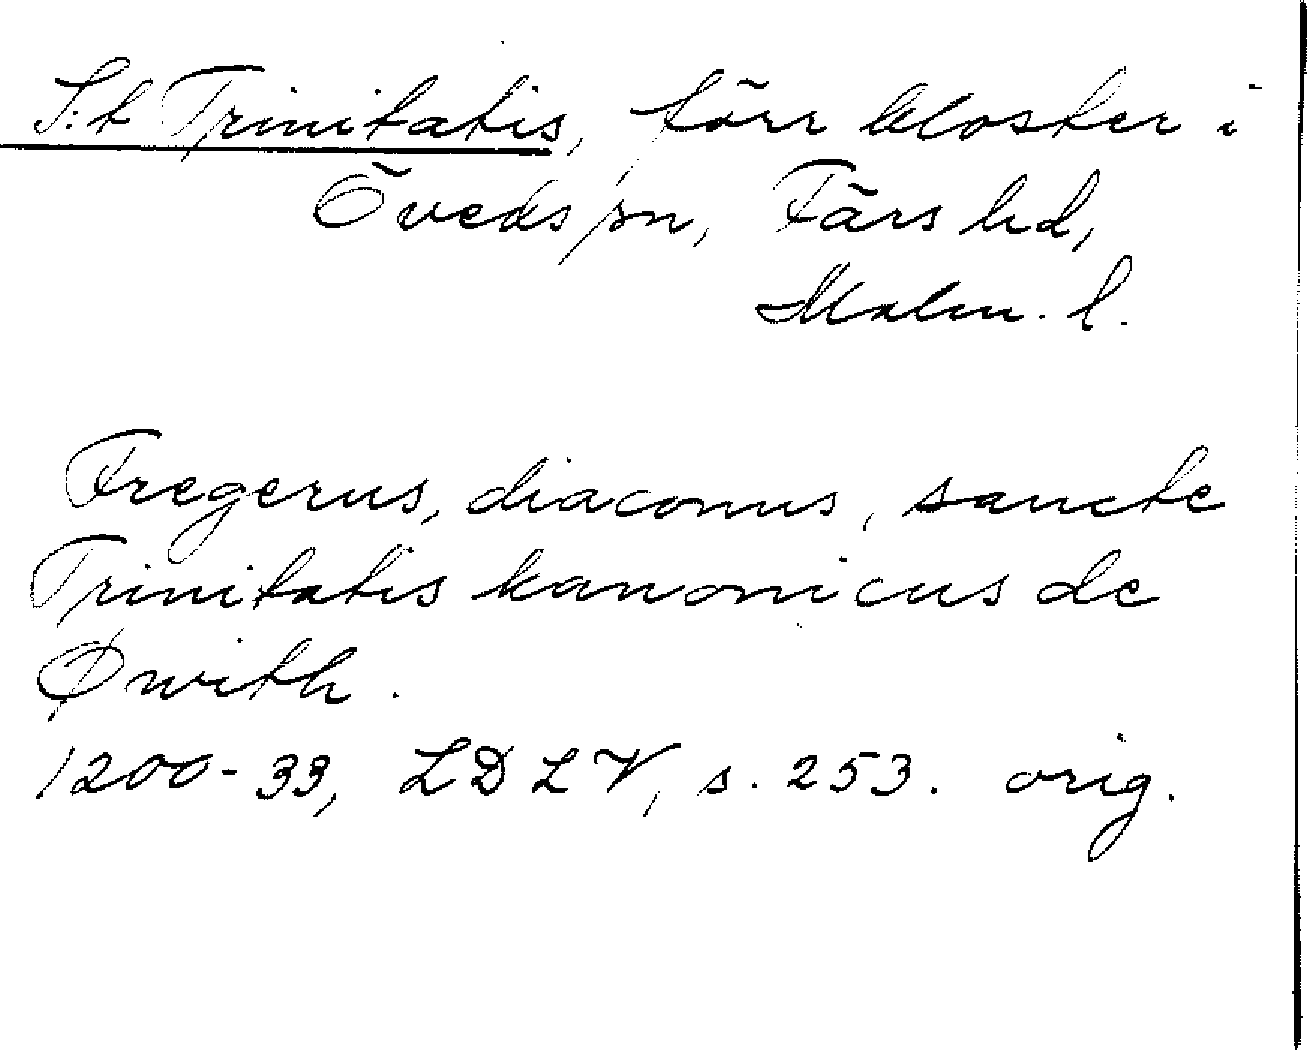 S:t Trinitatis, förr kloster i
Öveds sn, Färs hd,
Malm. l.
Fregerus, diaconus, sancte
Trinitatis kanonicus de
Øwith.
1200-33, LDLV, s. 253. orig.